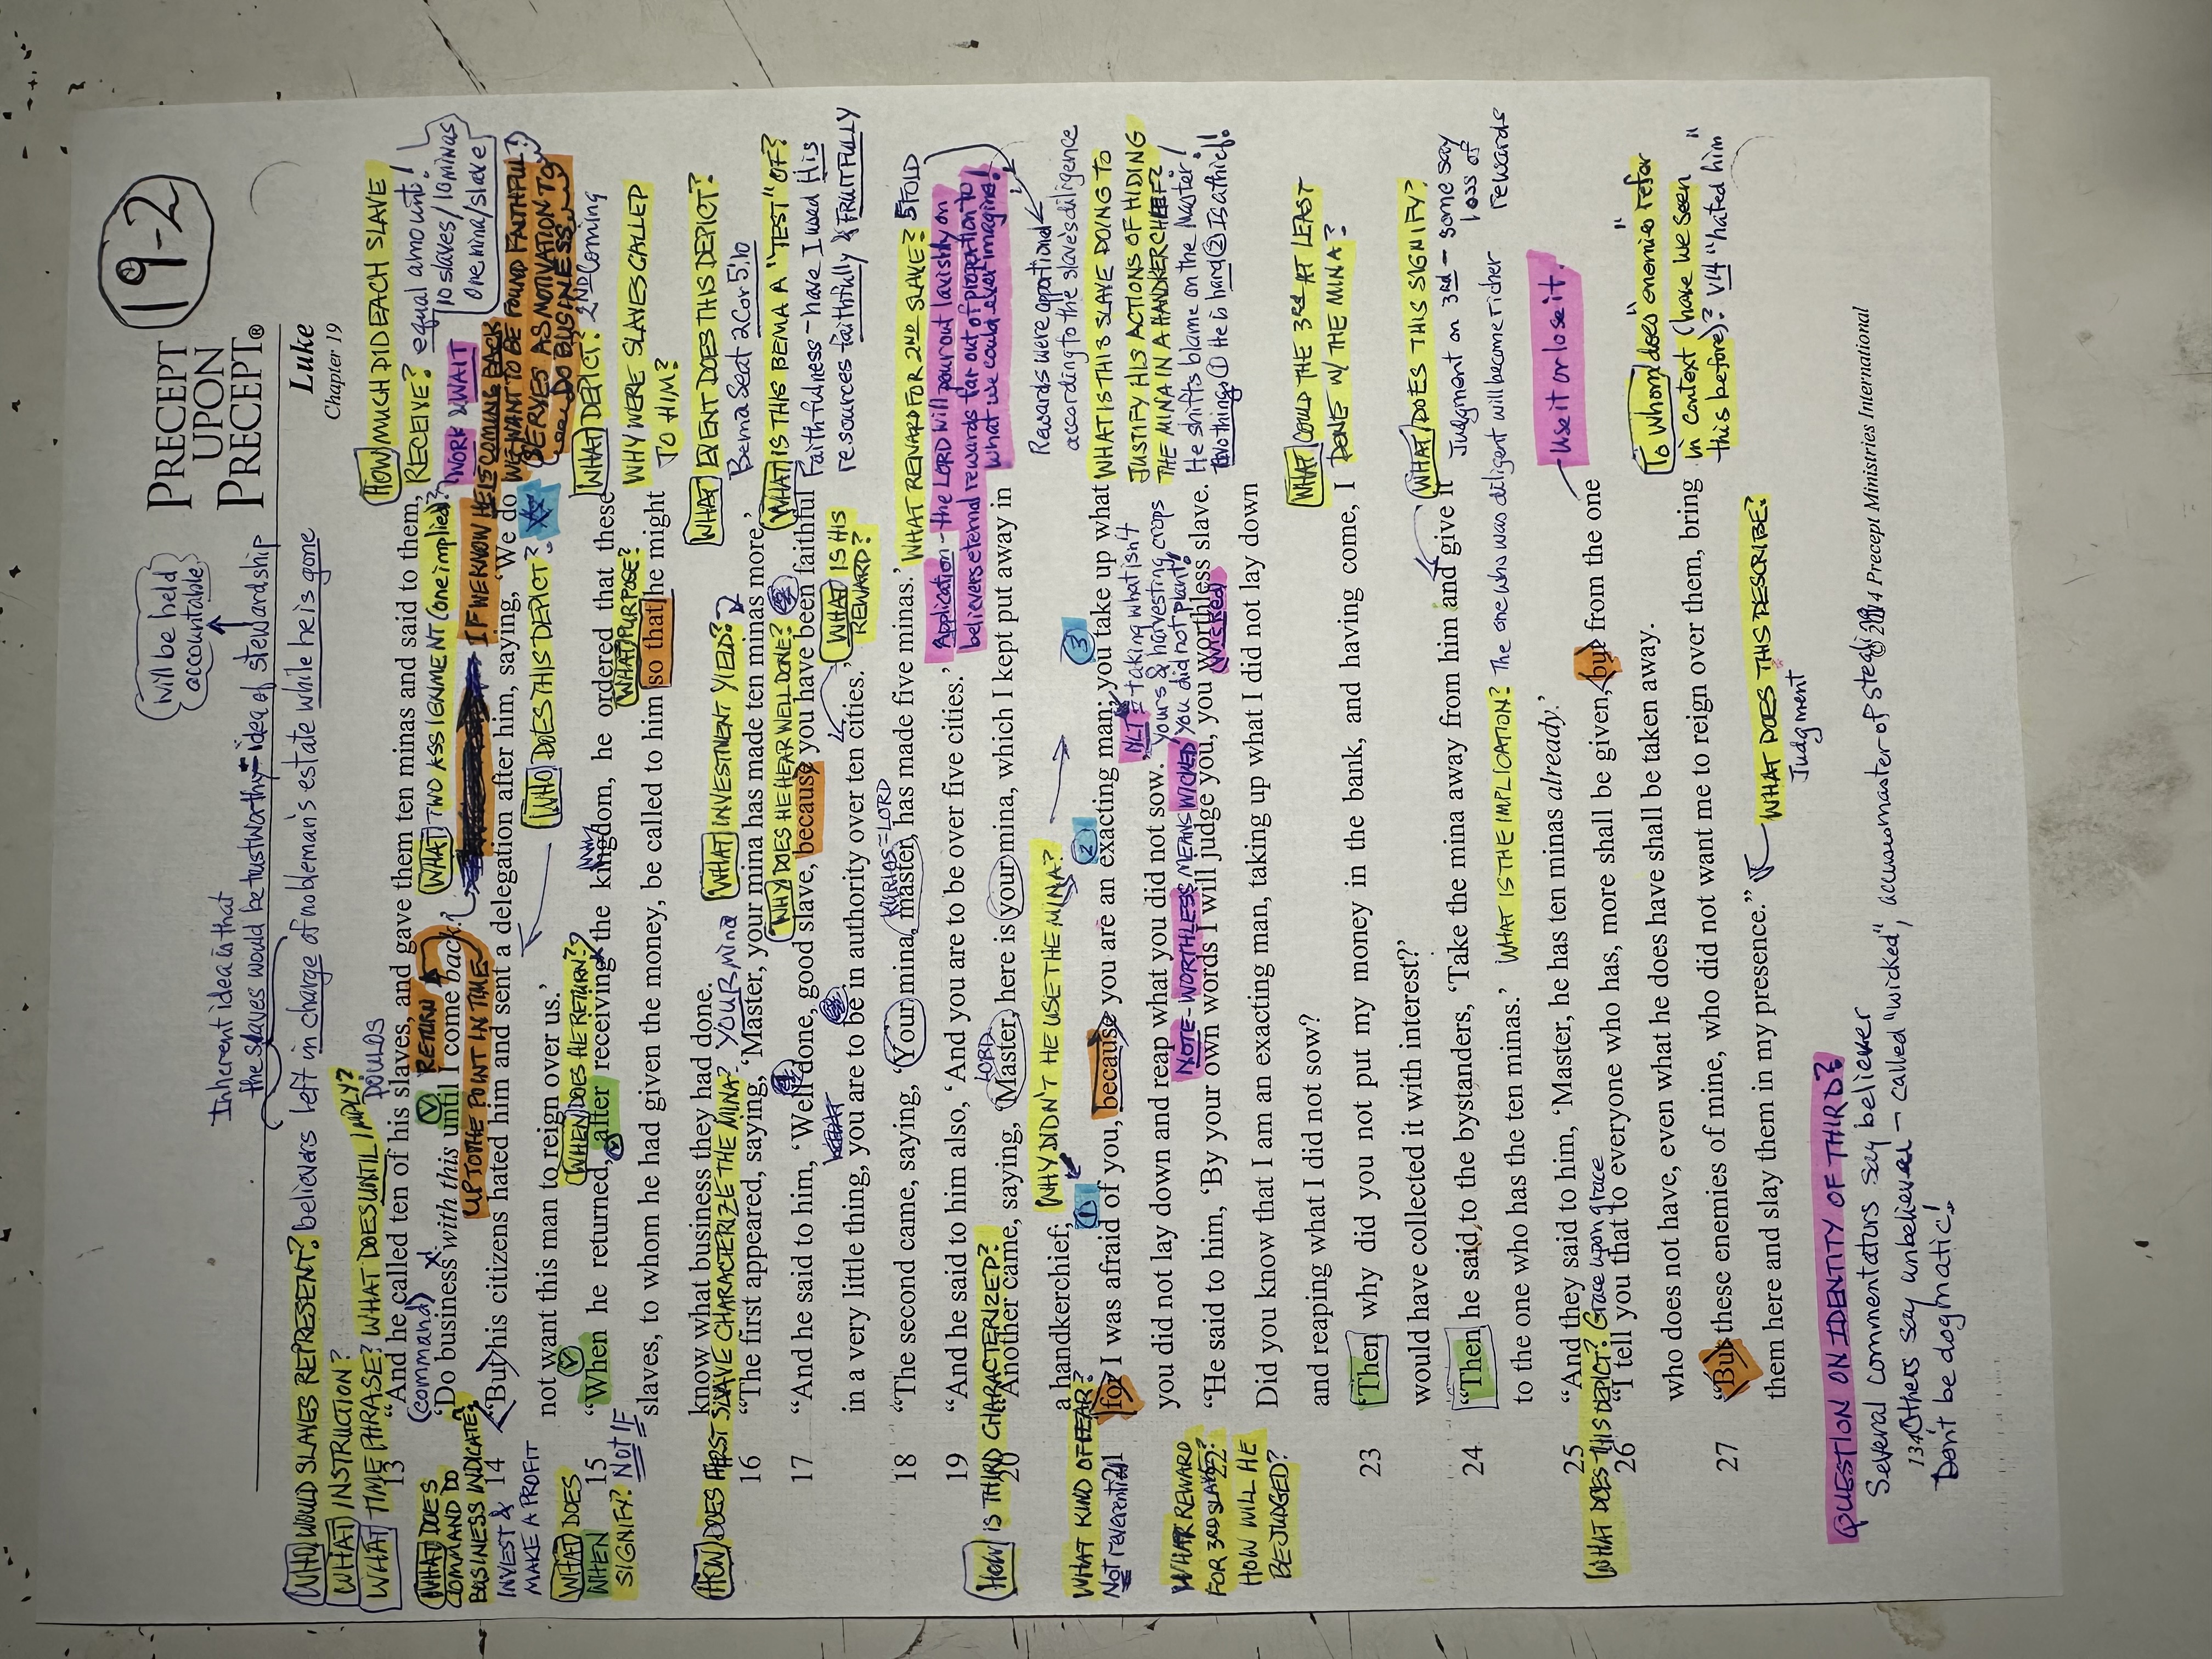 19-2
PRECEPT
UPON
PRECEPT®
Luke
Chapter 19
will be held
accountable
Inherent idea is that
the slaves would be trustworthy - idea of stewardship
WHO WOULD SLAVES REPRESENT? believers left in charge of nobleman's estate while he is gone
WHAT INSTRUCTION?
WHAT TIME PHRASE? WHAT DOES UNTIL IMPLY?
POUNDS
HOW MUCH DID EACH SLAVE
RECEIVE? equal amount!
10 slaves/10 minas
One mina/slave
13 "And he called ten of his slaves, and gave them ten minas and said to them,
(command)
RETURN
WHAT TWO ASSIGNMENT (one implied)? WORK & WAIT
'Do business with this until I come back.'
UP TO THE POINT IN TIME
IF WE KNOW HE IS COMING BACK
WE WANT TO BE FOUND FAITHFUL?
SERVES AS MOTIVATION TO
DO BUSINESS
WHAT DOES
COMMAND DO
BUSINESS INDICATE?
INVEST &
MAKE A PROFIT
14 "But his citizens hated him and sent a delegation after him, saying, 'We do
WHO DOES THIS DEPICT?
not want this man to reign over us.'
WHEN DOES HE RETURN?
WHAT DEPICT? 2ND Coming
WHAT DOES
WHEN
SIGNIFY? NOT IF
15 "When he returned, after receiving the kingdom, he ordered that these
WHAT PURPOSE?
WHY WERE SLAVES CALLED
TO HIM?
slaves, to whom he had given the money, be called to him so that he might
know what business they had done.
WHAT EVENT DOES THIS DEPICT?
Bema Seat 2Cor 5:10
HOW DOES FIRST SLAVE CHARACTERIZE THE MINA? YOUR mina
WHAT INVESTMENT YIELD?
16 "The first appeared, saying, 'Master, your mina has made ten minas more.'
WHY DOES HE HEAR WELL DONE?
WHAT IS THIS BEMA A "TEST" OF?
Faithfulness - have I used His
resources faithfully & FRUITFULLY
17 "And he said to him, 'Well done, good slave, because you have been faithful
WHAT IS HIS
REWARD?
in a very little thing, you are to be in authority over ten cities.'
KURIOS = LORD
18 "The second came, saying, 'Your mina, master, has made five minas.'
WHAT REWARD FOR 2ND SLAVE? 5 FOLD
Application - the LORD will pour out lavishly on
believers eternal rewards far out of proportion to
what we could ever imagine!
19 "And he said to him also, 'And you are to be over five cities.'
Rewards were apportioned
according to the slave's diligence
HOW IS THIRD CHARACTERIZED?
LORD
20 "Another came, saying, 'Master, here is your mina, which I kept put away in
a handkerchief;
WHY DIDN'T HE USE THE MINA?
1 2 3
WHAT KIND OF FEAR?
Not reverential
21 for I was afraid of you, because you are an exacting man; you take up what
WHAT IS THIS SLAVE DOING TO
JUSTIFY HIS ACTIONS OF HIDING
THE MINA IN A HANDKERCHIEF?
He shifts blame on the Master!
two things ① He is hard ② Is a thief!
NLT = taking what isn't
yours & harvesting crops
you did not plant!
you did not lay down and reap what you did not sow.'
NOTE - WORTHLESS MEANS WICKED
WHAT REWARD
FOR 3RD SLAVE?
HOW WILL HE
BE JUDGED?
22 "He said to him, 'By your own words I will judge you, you worthless slave.
WICKED
Did you know that I am an exacting man, taking up what I did not lay down
and reaping what I did not sow?
WHAT COULD THE 3RD AT LEAST
DONE W/ THE MINA?
23 'Then why did you not put my money in the bank, and having come, I
would have collected it with interest?'
WHAT DOES THIS SIGNIFY?
Judgment on 3rd - some say
loss of
rewards
24 "Then he said to the bystanders, 'Take the mina away from him and give it
to the one who has the ten minas.'
WHAT IS THE IMPLICATION? The one who was diligent will become richer
25 "And they said to him, 'Master, he has ten minas already.'
Use it or lose it.
WHAT DOES THIS DEPICT? Grace upon grace
26 "I tell you that to everyone who has, more shall be given, but from the one
who does not have, even what he does have shall be taken away.
To Whom does "enemies" refer
in context (have we seen
this before)? V14 "hated him"
27 "But these enemies of mine, who did not want me to reign over them, bring
them here and slay them in my presence."
WHAT DOES THIS DESCRIBE?
Judgment
QUESTION ON IDENTITY OF THIRD?
Several commentators say believer
134
Others say unbeliever - called "wicked", accuse master of steal
Don't be dogmatic!
Precept Ministries International